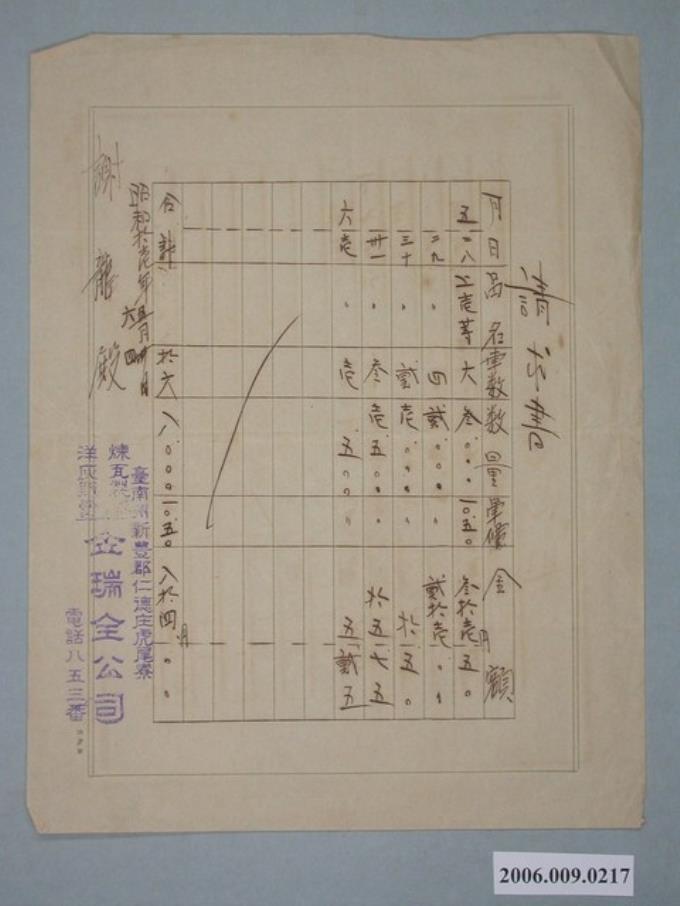 請求書
月日 品名 車数 数量 単價 金額
五 二八 上壱等 六 叁〇〇〇 一〇.五〇 叁拾壱円五〇
二九 〃 四 貳〇〇〇 〃 貳拾壱〃〃
三十 〃 貳 壱〇〇〇 〃 拾〃五〇
卅一 〃 叁 壱五〇〇 〃 拾五七五
六 壱 〃 壱 五〇〇 〃 五貳五
合計 拾六 八〇〇〇 一〇.五〇 八拾四円〇〇
昭和拾壱年六月四日
謝龍殿
臺南州新豐郡仁德庄虎尾寮
煉瓦製造
洋灰販賣
金瑞全公司
電話八五三番
2006.009.0217